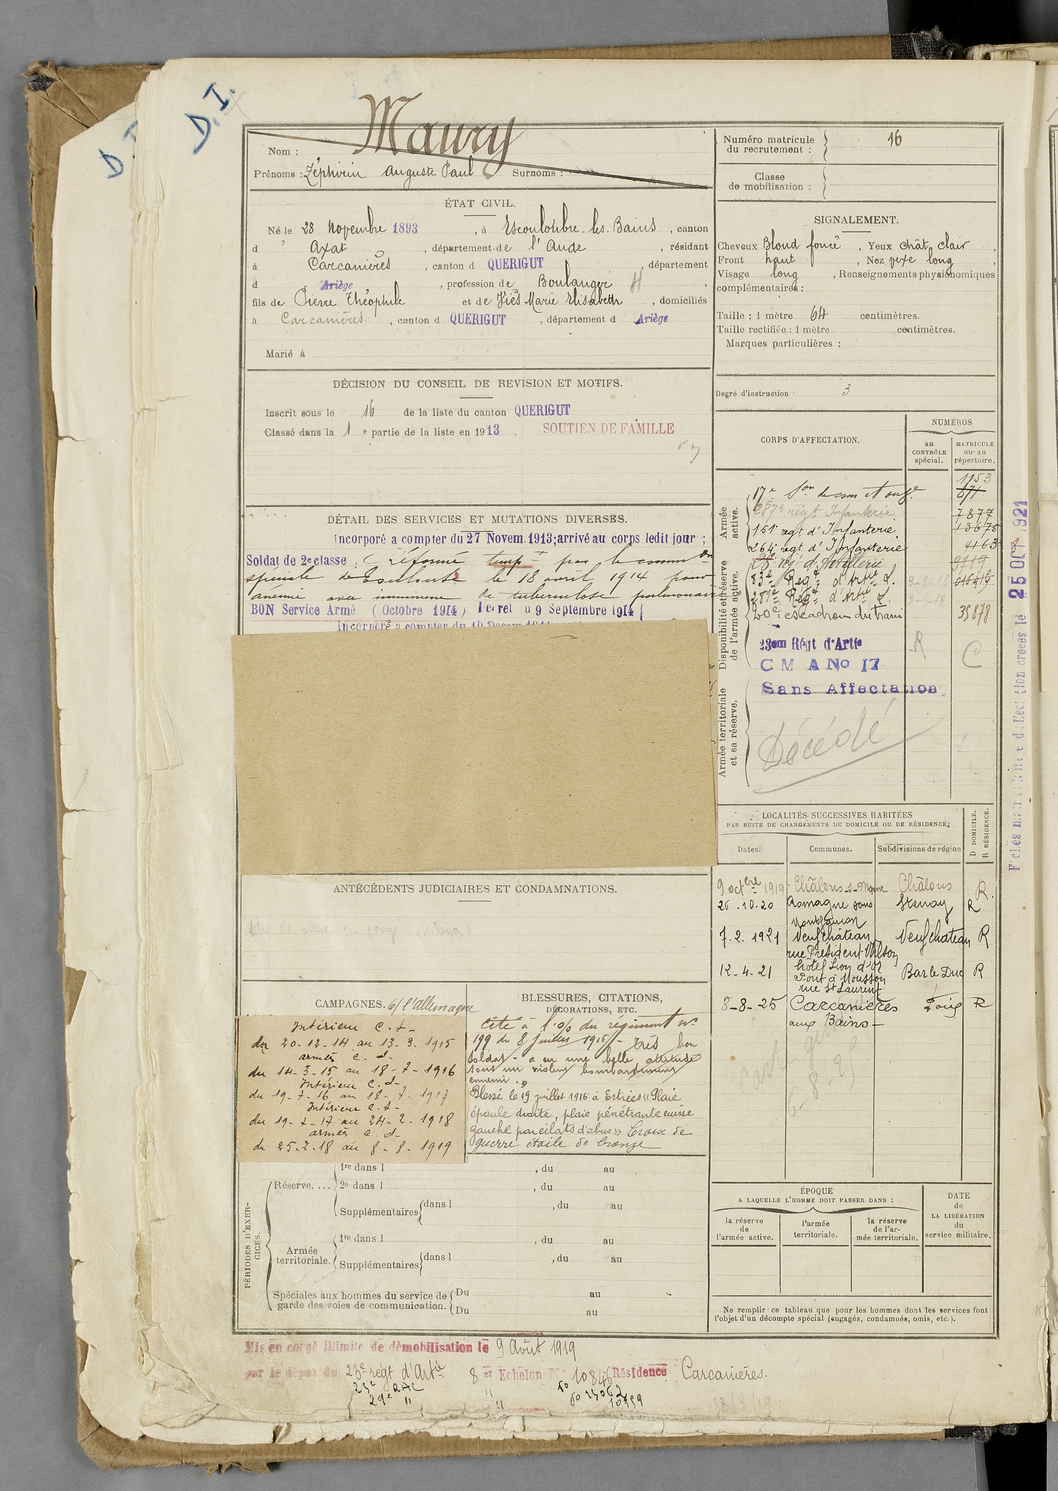 D. I.
Maury
Nom :
Prénoms : Zéphirin Auguste Paul Surnoms :
Numéro matricule du recrutement : 16
Classe de mobilisation :
ÉTAT CIVIL.
Né le 28 Novembre 1893, à Escouloubre-les-Bains, canton
d Axat, département de l'Aude, résidant
à Carcanières, canton d QUERIGUT, département
d Ariège, profession de Boulanger
fils de Pierre Théophile et de Marie Elisabeth, domiciliés
à Carcanières, canton d QUERIGUT, département d Ariège
Marié à
SIGNALEMENT.
Cheveux Blond foncé, Yeux chât. clair,
Front haut, Nez vexe long,
Visage long, Renseignements physionomiques
complémentaires :
Taille : 1 mètre 64 centimètres.
Taille rectifiée : 1 mètre centimètres.
Marques particulières :
Degré d'instruction : 3
DÉCISION DU CONSEIL DE REVISION ET MOTIFS.
Inscrit sous le 16 de la liste du canton QUERIGUT
Classé dans la 1e partie de la liste en 1913. SOUTIEN DE FAMILLE
DÉTAIL DES SERVICES ET MUTATIONS DIVERSES.
Incorporé a compter du 27 Novem. 1913; arrivé au corps ledit jour ;
Soldat de 2e classe ; réformé tempre par la common
spéciale de le 18 avril 1914 pour
anemie avec imminence de tuberculose pulmonaire
BON Service Armé (Octobre 1914) Decret du 9 Septembre 1914
Incorporé a compter du
CORPS D'AFFECTATION.
NUMÉROS
au CONTRÔLE spécial.
MATRICULE ou au répertoire.
Armée active.
Disponibilité et réserve de l'armée active.
Armée territoriale et sa réserve.
17e
1153
87e régt Infanterie
7877
151e regt d'Infanterie
13675
264e regt d'Infanterie
4163
20e escadron du train
35878
23em Régt d'Artie
C M A No 17
R
C
Sans Affectation
Décédé
25 OCT 1921
LOCALITÉS SUCCESSIVES HABITÉES
PAR SUITE DE CHANGEMENTS DE DOMICILE OU DE RÉSIDENCE.
Dates.
Communes.
Subdivisions de région
D DOMICILE.
R RÉSIDENCE.
9 octbre 1919 Châlons s-Marne Châlons R.
26-10-20 Romagne sous Montfaucon Stenay R
7.2.1921 Neufchâteau rue Président Wilson Neufchateau R
12-4-21 hôtel Lion d'Or Pont à Mousson rue St Laurent Bar le Duc R
8-8-25 Carcanières aux Bains Foix R
ANTÉCÉDENTS JUDICIAIRES ET CONDAMNATIONS.
CAMPAGNES. c/ l'Allemagne
Intérieur C. S-
du 20-12-14 au 13-3-1915
armées C. d-
du 14-3-15 au 18-7-1916
Intérieur C. d-
du 19-7-16 au 18-7-1917
Intérieur C. S-
du 19-7-17 au 24-2-1918
armées C. d-
du 25-2-18 au 8-8-1919
BLESSURES, CITATIONS, DÉCORATIONS, ETC.
Cité à l'o/o du régiment no
199 du 8 juillet 1916 - très bon
soldat - a eu une belle attitude
sous un violent bombardement
ennemi. »
Blessé le 19 juillet 1916 à Estrées « Plaie
épaule droite, plaie pénétrante cuisse
gauche par éclats d'obus » Croix de
guerre étoile de bronze
PÉRIODES D'EXERCICES.
Réserve....
1re dans l , du au
2e dans l , du au
Supplémentaires dans l , du au
Armée territoriale.
1re dans l , du au
Supplémentaires dans l , du au
Spéciales aux hommes du service de garde des voies de communication.
Du au
Du au
ÉPOQUE
A LAQUELLE L'HOMME DOIT PASSER DANS :
la réserve de l'armée active.
l'armée territoriale.
la réserve de l'armée territoriale.
DATE DE LA LIBÉRATION du service militaire.
Ne remplir ce tableau que pour les hommes dont les services font
l'objet d'un décompte spécial (engagés, condamnés, omis, etc.).
Mis en congé illimité de démobilisation le 9 Août 1919
par le dépôt du 23e régt d'Artie 8er Echelon No 10846 Résidence Carcanières.
23e RAC "